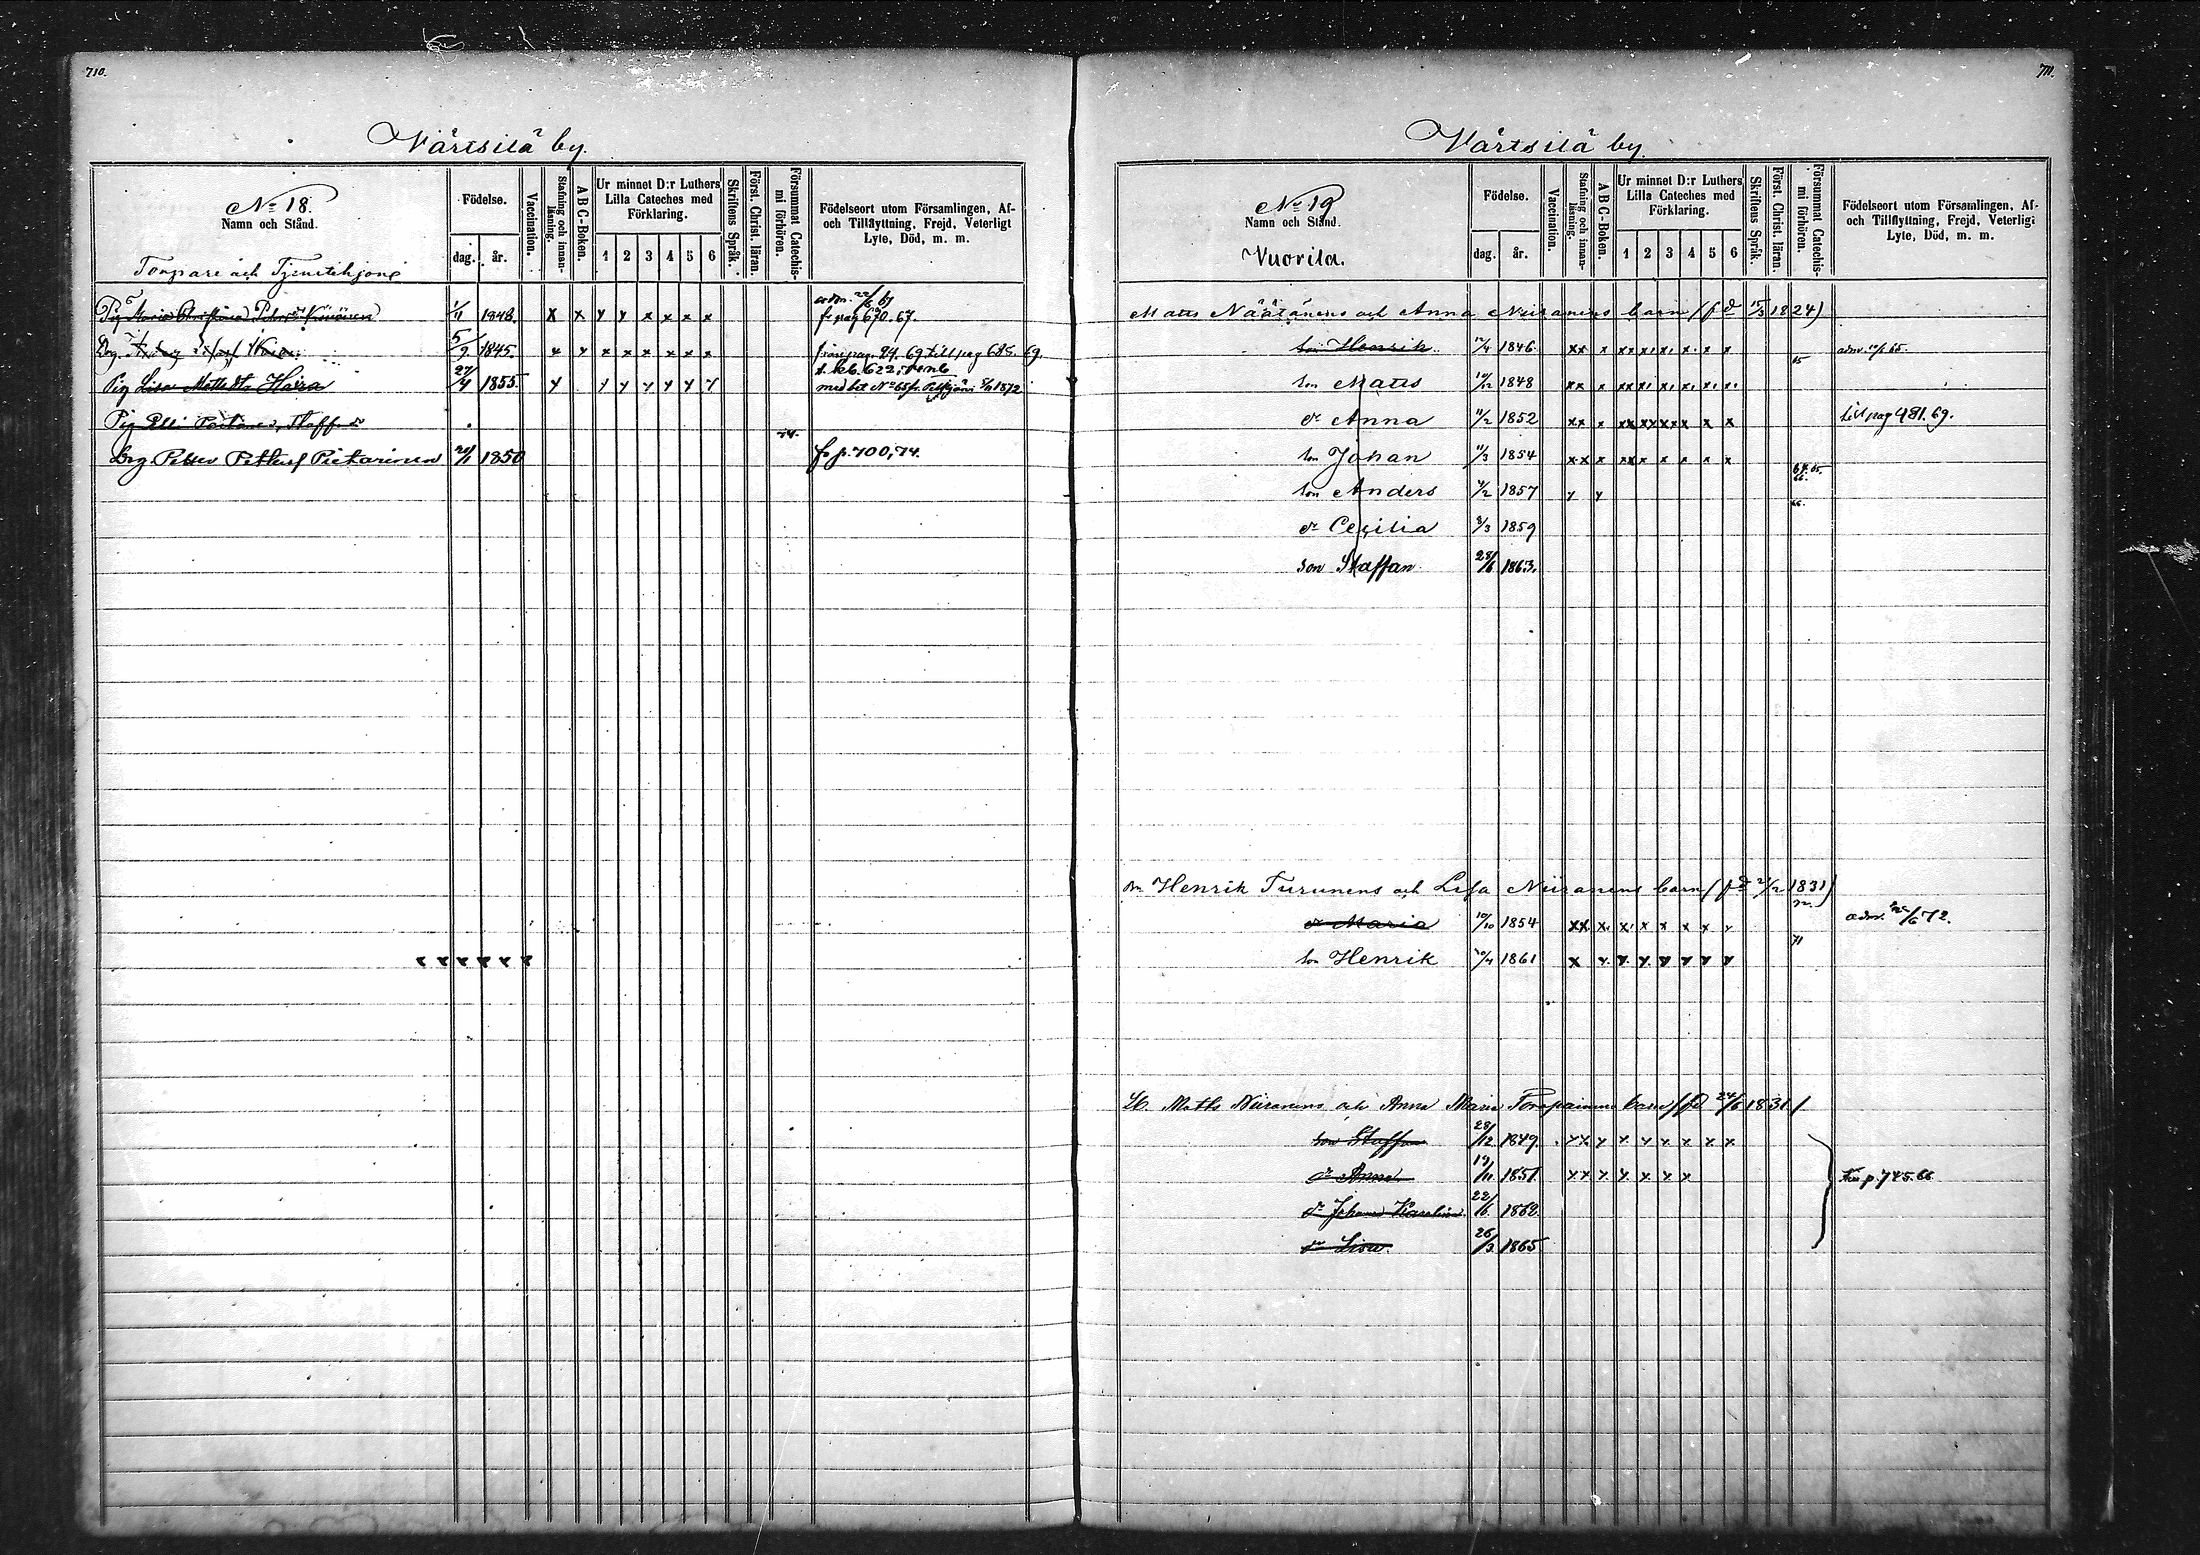 710.
Värtsilä by.
No 18.
Namn och Stånd.
Födelse.
dag. år.
Vaccination.
Stafning och innanläsning.
ABC-Boken.
Ur minnet D:r Luthers Lilla Cateches med Förklaring.
1 2 3 4 5 6
Skriftens Språk.
Först. Christ. läran.
Försummat Catechismi förhören.
Födelseort utom Församlingen, Af- och Tillflyttning, Frejd, Veterligt Lyte, Död, m. m.
Torpare och Tjenstehjons
Pig. Maria Christina 1/11 1848. x x y y x x x x adm. 22/6 67 fr pag 670. 67.
Drg. 5/9 1845. x y x x x x x x från pag. 24. 69 till pag 685. 69.
Pig Lisa Mattsdr Haira 27/4 1855. y y y y y y y med bet No 65 fr. 1872
Pig Elli
74.
Drg. Petter Pettersf Pietarinen 20/1 1850 fr p. 700, 74.
711.
Värtsilä by.
No 19
Namn och Stånd.
Vuorila.
Födelse.
dag. år.
Vaccination.
Stafning och innanläsning.
ABC-Boken.
Ur minnet D:r Luthers Lilla Cateches med Förklaring.
1 2 3 4 5 6
Skriftens Språk.
Först. Christ. läran.
Försummat Catechismi förhören.
Födelseort utom Församlingen, Af- och Tillflyttning, Frejd, Veterligt Lyte, Död, m. m.
Matts Näätänens och Anna Niiranens barn (fd 15/3 1824)
son Henrik 1846 xx x xx x x x x x 65
son Matts 10/12 1848 xx x xx x x x x x
dr Anna 11/2 1852 xx x xx xx xx x x x till pag 481. 69.
son Johan 11/3 1854 xx x xx x x x x x 64. 65. 66.
son Anders 4/2 1857 y y 66.
dr Cecilia 8/3 1859
son Staffan 28/6 1863.
Henrik Turunens och Lisa Niiranens barn (fd 2/2 1831)
dr Maria 10/10 1854 xx x x x x x x x adm. 72.
71
son Henrik 1861 x x x x x x x x
Matts Niiranens och Anna Maria Torpainens barn (fd 24/6 1831)
son Staffan 28/12 1849. xx y x x x x x x
dr Anna 19/11 1851. xx x x x x x Fr. p. 745. 66
dr Johanna Karolina 22/6 1862.
dr Lisa 26/3 1865